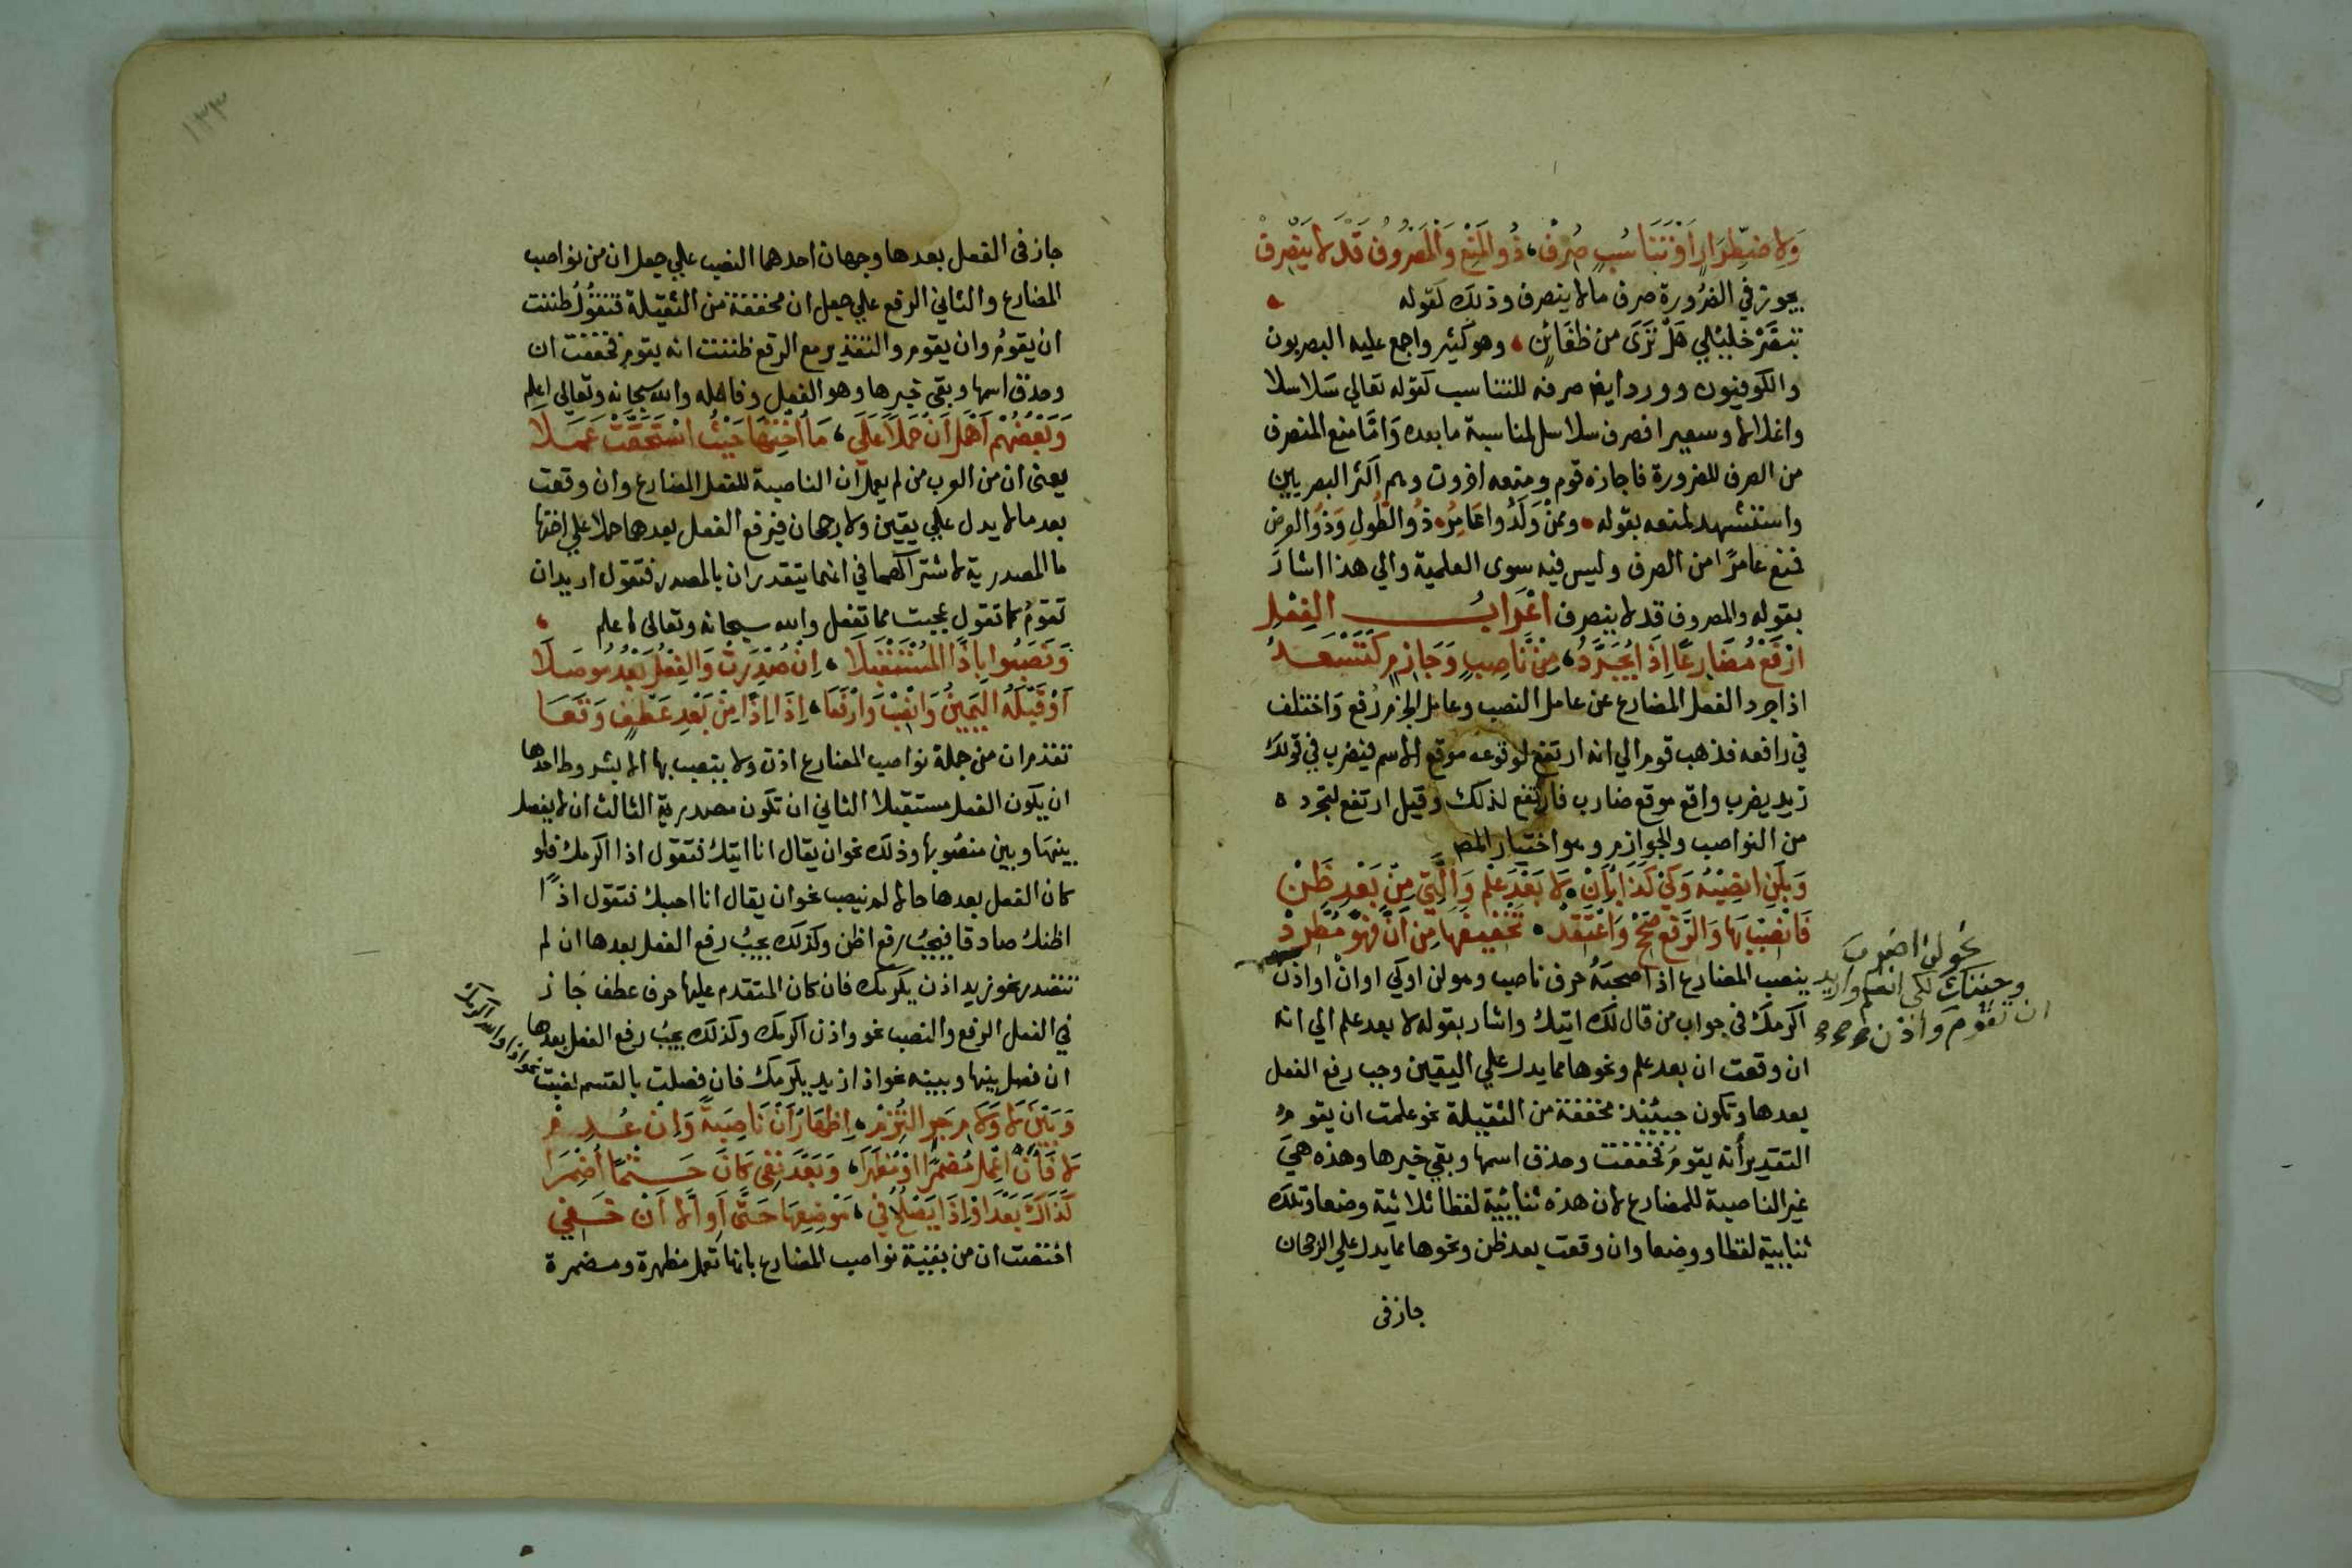 وَلِاضْطِرَارٍ اَوْ تَنَاسُبٍ صُرِفْ، ذُو الْمَنْعِ وَالْمَصْرُوفُ قَدْ لَا يَنْصَرِفْ
يجوز في الضرورة صرف ما لا ينصرف وذلك كقوله
تبصَّرْ خليلي هَلْ تَرَى من ظعَائنٍ وهو كثير واجمع عليه البصريون
والكوفيون وورد ايضا صرفه للتناسب كقوله تعالي سَلاسلا
واغلالا وسعيرا فصرف سلاسل لمناسبة ما بعده وَامّا منع المنصرف
من الصرف للضرورة فاجازه قوم ومنعه اخرون وهم اكثر البصريين
واستشهد لمنعه بقوله وممنْ وَلَدُوا عَامِرُ ذُو الطُولِ وَذُو العرض
فمنع عامرًا من الصرف وليس فيه سوى العلمية والي هذا اشارَ
بقوله والمصروف قد لا ينصرف اعْرَابُ الفِعْلِ
ارْفَعْ مُضَارِعًا اِذَا يُجَرَّدُ، مِنْ نَّاصِبٍ وَجَازِمٍ كَتَسْعَدُ
اذا جرد الفعل المضارع عن عامل النصب وعامل الجزم رُفع وَاختلف
في رافعه فذهب قوم الي انه ارتفع لوقوعه موقع الاسم فيضرب في قولك
زيد يضرب واقع موقع ضارب فارتفع لذلك وقيل ارتفع لتجرده
من النواصب والجوازم وهو اختيار المص
وَبِلَنِ انصِبْهُ وَكَيْ كَذَا بِاَنْ، لَا بَعْدَ عِلْمٍ وَالَّتِي مِنْ بَعْدِ ظَنْ
فَانْصِبْ بِهَا وَالرَّفْعَ صَحِّحْ وَاعْتَقِدْ، تَخْفِيفَهَا مِنْ اَنَّ فَهْوَ مُطَّرِدْ
ينصب المضارع اذا صحبَهُ حرف ناصب وهو لن اوكي اوانْ او اذن
نحو لن اضرب
وجئتك لكي اتعلم واريد
ان تقوم واذن
اكرمك في جواب من قال لك اتيك واشار بقوله لا بعد علم الي انه
ان وقعت ان بعد علم ونحوها مما يدل علي اليقين وجب رفع الفعل
بعدها وتكون حينئذ مخففة من الثقيلة نحو علمت ان يقومُ
التقدير أنه يقومُ فخففت وحذف اسمها وبقي خبرها وهذه هيَ
غير الناصبة للمضارع لان هذه ثنائية لفظا ثلاثية وضعا وتلك
ثنايية لفظا ووضعا وان وقعت بعد ظن ونحوها مما يدل علي الرجحان
جاز في
١٣٣
جاز في الفعل بعدها وجهان احدهما النصب علي جعل ان من نواصب
المضارع والثاني الرفع علي جعل ان مخففة من الثقيلة فتقُولُ ظننت
ان يقومُ وان يقوم والتقدير مع الرفع ظننت انه يقوم فخففت ان
وحذف اسمها وبقي خبرها وهو الفعل وفاعله والله سبحانه وتعالى اعلم
وَبَعْضُهُمْ اَهْمَلَ اَنْ حَمْلًا عَلَى، مَا اُخْتِهَا حَيْثُ اسْتَحَقَّتْ عَمَلَا
يعني ان من العرب من لم يعمل ان الناصبة للفعل المضارع وان وقعت
بعد ما لا يدل علي يقين ولا رجحان فيرفع الفعل بعدها حملا علي اختها
ما المصدرية لاشتراكهما في انهما يتقدران بالمصدر فتقول اريد ان
تقومُ كما تقول عجبت مما تفعل والله سبحانه وتعالى اعلم
وَنَصَبُوا بِاِذًا الْمُسْتَقْبَلَا، اِنْ صُدِّرَتْ وَالفِعْلُ بَعْدُ مُوصَلَا
اَوْ قَبْلَهُ اليَمِينُ وَانْصِبْ وَارْفَعَا، اِذَا اِذًا مِنْ بَعْدِ عَطْفٍ وَقَعَا
تقدم ان من جملة نواصب المضارع اذن ولا ينصب بها الا بشروط احدها
ان يكون الفعل مستقبلا الثاني ان تكون مصدرية الثالث ان لا يفصل
بينها وبين منصُوبها وذلك نحو ان يقال انا اتيك فتقول اذا اكرمك فلو
كان الفعل بعدها حالا لم ينصب نحو ان يقال انا احبك فتقول اذًا
اظنك صادقا فيجبُ رفع اظن وكذلك يجبُ رفع الفعل بعدها ان لم
تتصدر نحو زيد اذن يكرمك فان كان المتقدم عليها حرف عطف جَاز
في الفعل الرفع والنصب نحو واذن اكرمك وكذلك يجبُ رفع الفعل بعدها
ان فصل بينها وبينه نحو اذا زيد يكرمك فان فصلت بالقسم نصبت
نحو اذا والله اكرمك
وَبَيْنَ لَا وَلَامِ جَرٍّ الْتُزِمْ، اِظْهَارُ اَنْ نَاصِبَةً وَاِنْ عُدِمْ
لَا فَاَنْ اعْمِل مُضْمَرًا اوْ مُظْهَرَا، وَبَعْدَ نَفْى كَانَ حَتْمًا اُضْمِرَا
كَذَاكَ بَعْدَ اوْ اِذَا يَصْلُحُ فِي، مَوْضِعِهَا حَتَّى اَوِ الَّا اَنْ خَفِي
اختصت ان من بقية نواصب المضارع بانها تعمل مظهرة ومضمرة